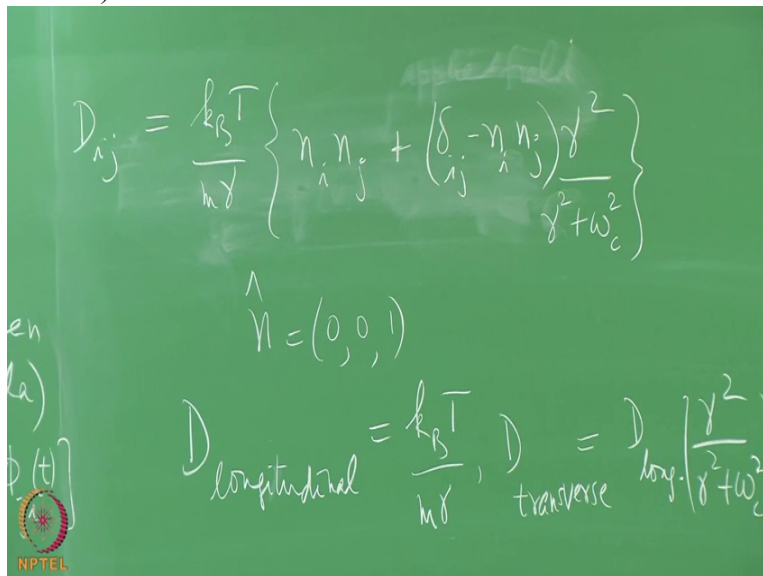 applied field
D_ij = k_B T / mγ { n_i n_j + (δ_ij - n_i n_j) γ² / γ² + ω_c² }
n̂ = (0, 0, 1)
en
la)
ϕ_i(t)]
D_longitudinal = k_B T / mγ, D_transverse = D_long. [ γ² / γ² + ω_c²
NPTEL